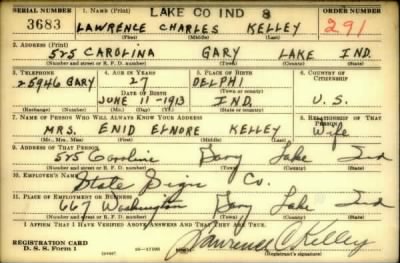 SERIAL NUMBER 1. NAME (Print) LAKE CO IND 8 ORDER NUMBER
3683 LAWRENCE CHARLES KELLEY 291
(First) (Middle) (Last)
2. ADDRESS (Print)
525 CAROLINA GARY LAKE IND.
(Number and street or R. F. D. number) (Town) (County) (State)
3. TELEPHONE 4. AGE IN YEARS 5. PLACE OF BIRTH 6. COUNTRY OF CITIZENSHIP
25946 GARY 27 DELPHI
DATE OF BIRTH (Town or county)
JUNE 11-1913 IND. U.S.
(Exchange) (Number) (Mo.) (Day) (Yr.) (State or country)
7. NAME OF PERSON WHO WILL ALWAYS KNOW YOUR ADDRESS 8. RELATIONSHIP OF THAT PERSON
MRS. ENID ELNORE KELLEY Wife
(Mr., Mrs., Miss) (First) (Middle) (Last)
9. ADDRESS OF THAT PERSON
525 Caroline Gary Lake Ind
(Number and street or R. F. D. number) (Town) (County) (State)
10. EMPLOYER'S NAME
State Sign Co.
11. PLACE OF EMPLOYMENT OR BUSINESS
667 Washington Gary Lake Ind
(Number and street or R. F. D. number) (Town) (County) (State)
I AFFIRM THAT I HAVE VERIFIED ABOVE ANSWERS AND THAT THEY ARE TRUE.
REGISTRATION CARD
D. S. S. Form 1 Lawrence C. Kelley
(Registrant's signature)